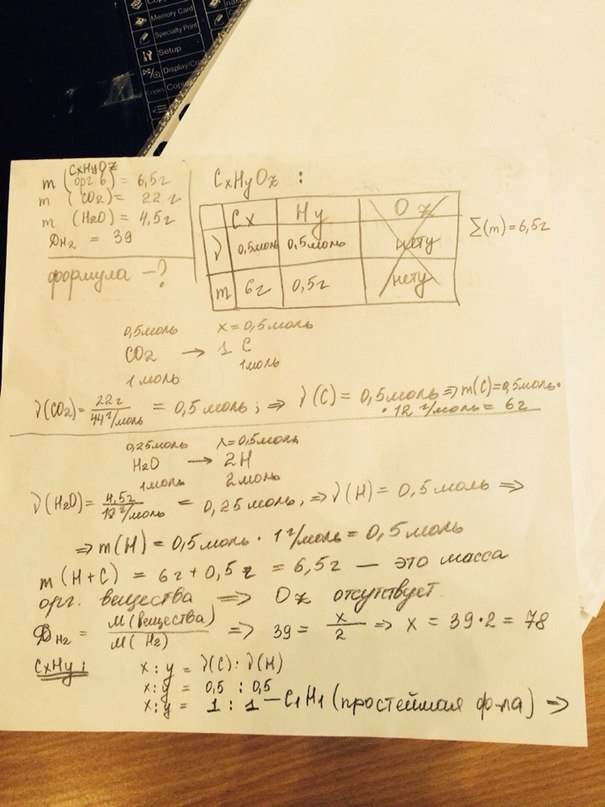 Memory Card
Specialty Print
Setup
CxHyOz
m (орг. в) = 6,5г
m (CO2) = 22 г
m (H2O) = 4,5г
DH2 = 39
формула – ?
CxHyOz :
Cx Hy Oz
ν 0,5моль 0,5моль нету
m 6г 0,5г нету
Σ(m) = 6,5г
0,5моль x = 0,5моль
CO2 → 1 C
1 моль 1моль
ν(CO2) = 22г / 44г/моль = 0,5моль ; ⇒ ν(C) = 0,5моль ⇒ m(C) = 0,5моль •
• 12 г/моль = 6г
0,25моль x = 0,5моль
H2O → 2H
1моль 2моль
ν(H2O) = 4,5г / 18г/моль = 0,25моль, ⇒ ν(H) = 0,5моль ⇒
⇒ m(H) = 0,5моль • 1г/моль = 0,5моль
m(H+C) = 6г + 0,5г = 6,5г — это масса
орг. вещества ⇒ Oz отсутствует.
DH2 = M(вещества) / M(H2) ⇒ 39 = x/2 ⇒ x = 39•2 = 78
CxHy :
x : y = ν(C) : ν(H)
x : y = 0,5 : 0,5
x : y = 1 : 1 – C1H1 (простейшая ф-ла) ⇒